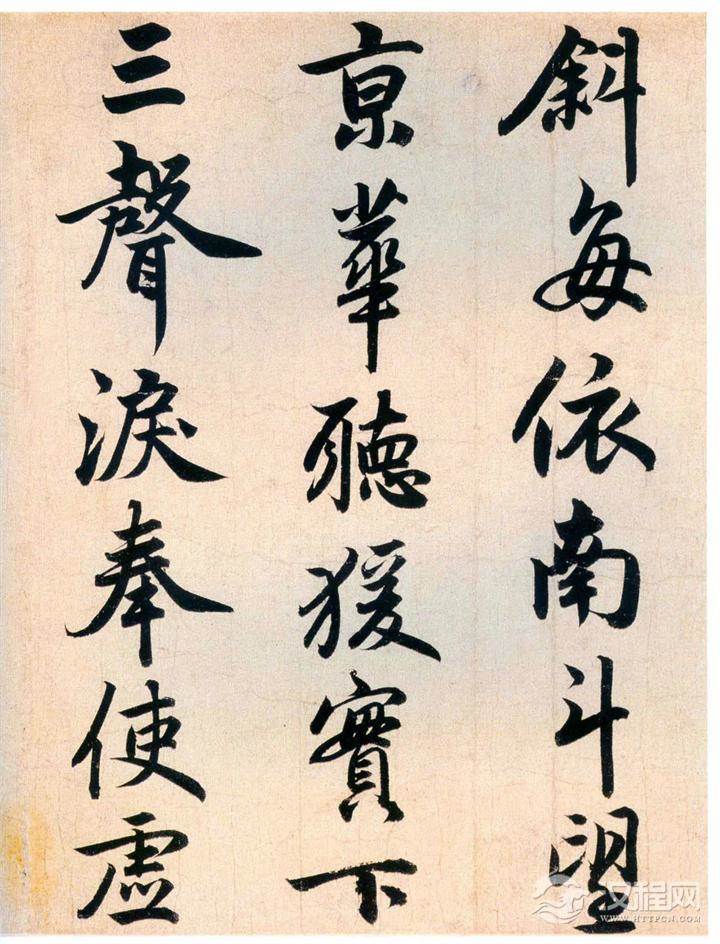 斜每依南斗望
京華聽猨實下
三聲淚奉使虛
汉程网
WWW.HTTPCN.COM